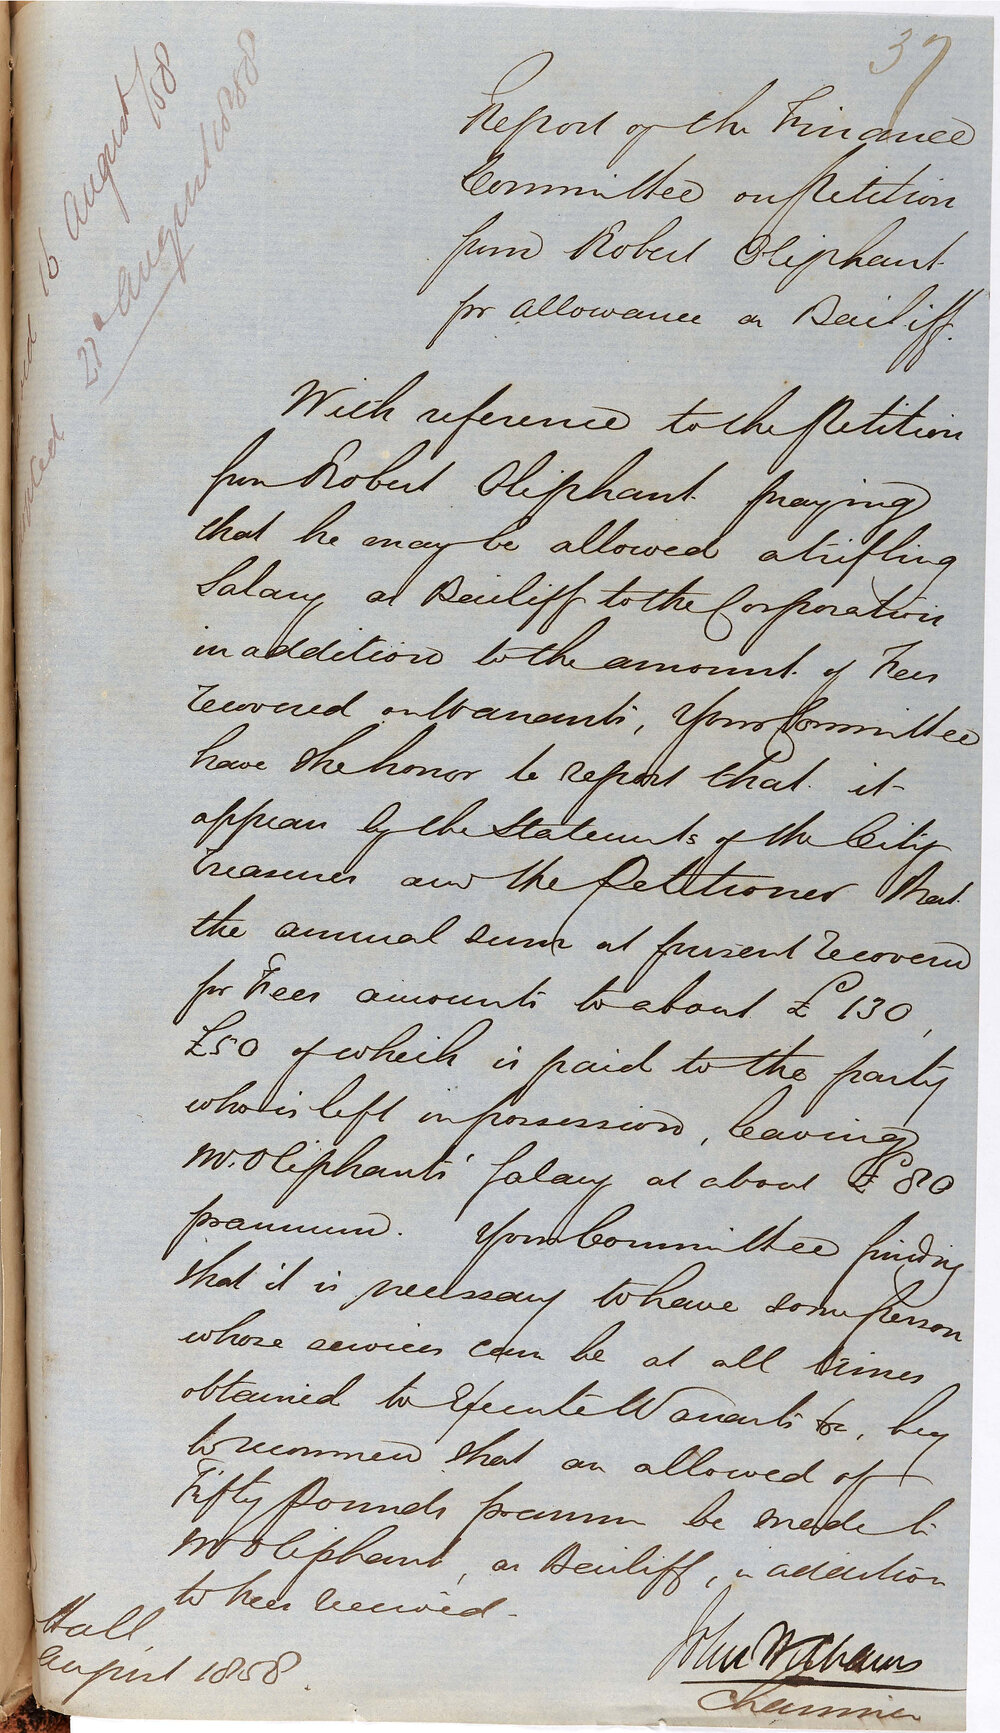 37
16 August /58
27th August 1858
Report of the Finance
Committee on Petition
from Robert Oliphant
for allowance as Bailiff.
With reference to the Petition
from Robert Oliphant praying
that he may be allowed a trifling
Salary as Bailiff to the Corporation
in addition to the amount of Fees
recovered on Warrants, Your Committee
have the honor to report that it
appears by the Statements of the City
Treasurer and the Petitioner that
the annual sum at present recovered
for Fees amounts to about £130,
£50 of which is paid to the party
who is left in possession, leaving
Mr. Oliphants' Salary at about £80
pr annum. Your Committee finding
that it is necessary to have some person
whose services can be at all times
obtained to Execute Warrants &c, beg
to recommend that an allowed of
Fifty Pounds pr annum be made to
Mr Oliphant, as Bailiff, in addition
to Fees received.
Hall
August 1858.
John Williams
Chairman